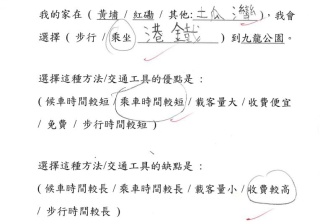 我的家在 ( 黃埔 / 紅磡 / 其他: 土瓜灣 )，我會
選擇 ( 步行 / 乘坐 港鐵 ) 到九龍公園。
選擇這種方法/交通工具的優點是 :
( 候車時間較短 / 乘車時間較短 / 載客量大 / 收費便宜
/ 免費 / 步行時間較短 )
選擇這種方法/交通工具的缺點是 :
( 候車時間較長 / 乘車時間較長 / 載客量小 / 收費較高
/ 步行時間較長 )